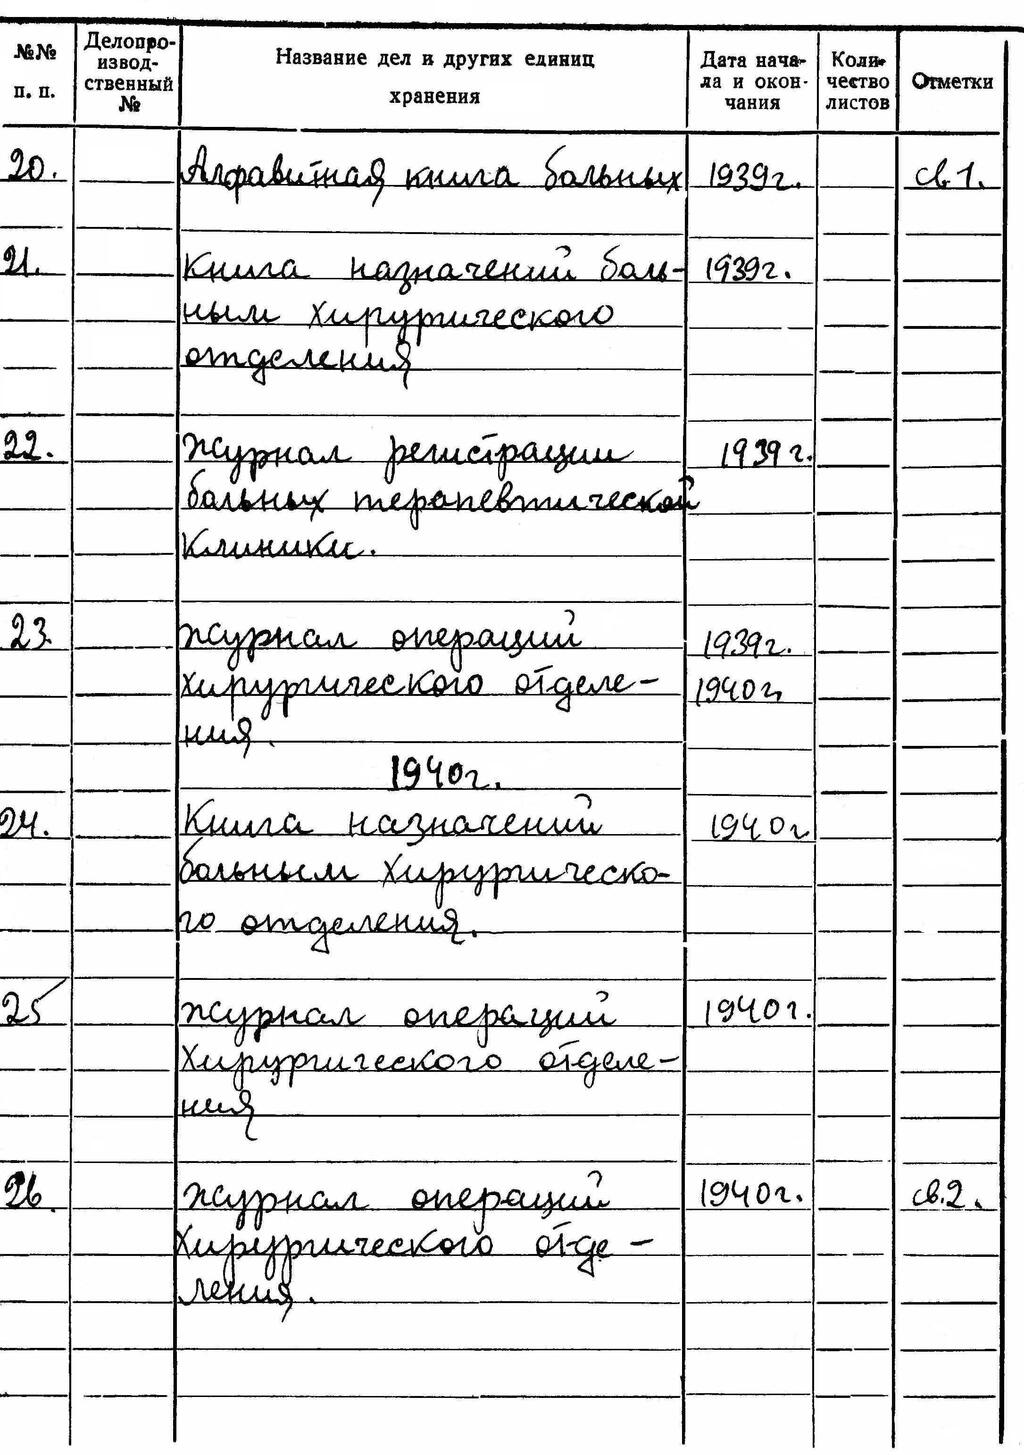 №№ п. п.
Делопро-
извод-
ственный
№
Название дел и других единиц
хранения
Дата нача-
ла и окон-
чания
Коли-
чество
листов
Отметки
20. Алфавитная книга больных 1939г. св.1.
21. Книга назначений боль- 1939г.
ным хирургического
отделения
22. Журнал регистрации 1939г.
больных терапевтической
клиники.
23. Журнал операций 1939г.
хирургического отделе- 1940г.
ния.
1940г.
24. Книга назначений 1940г
больным хирургическо-
го отделения.
25 Журнал операций 1940г.
хирургического отделе-
ния
26. Журнал операций 1940г. св.2.
хирургического отде-
ления.